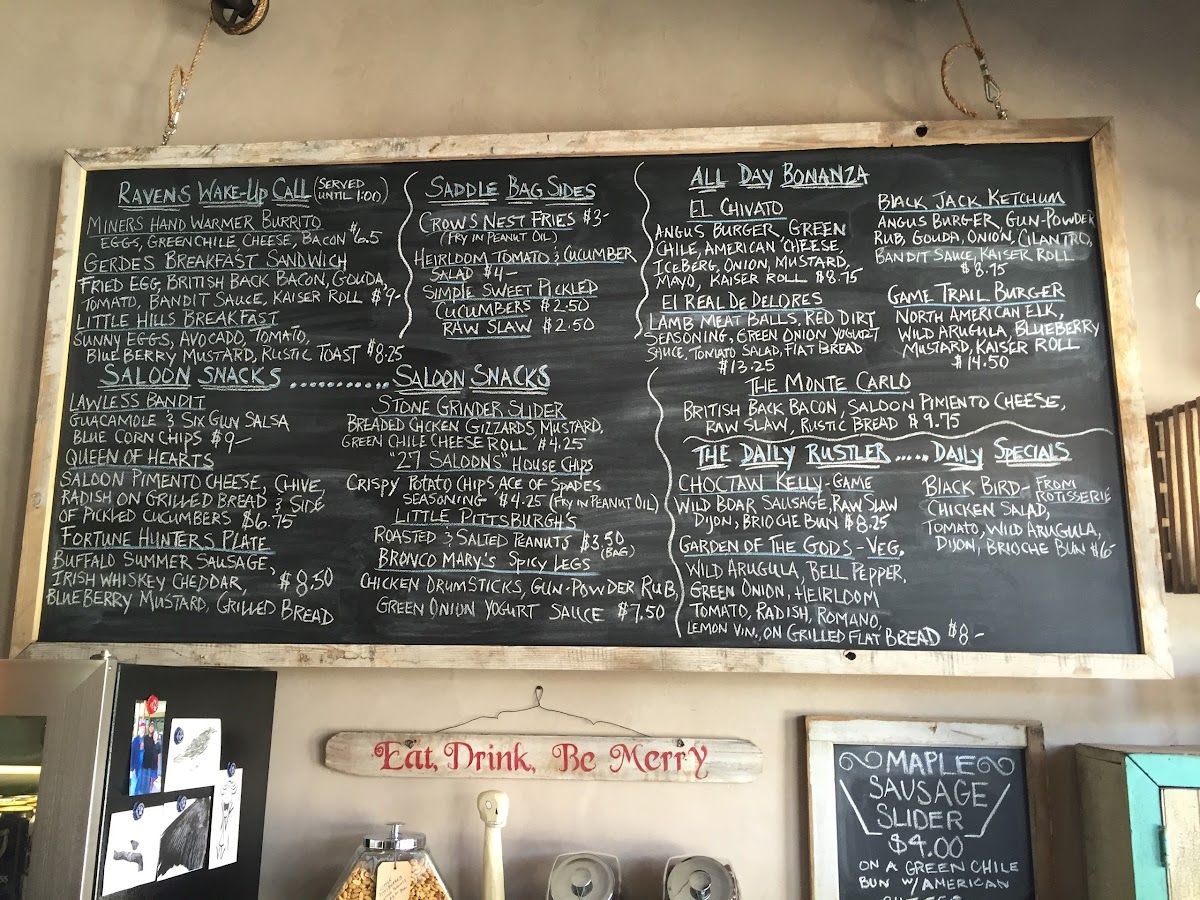 RAVENS WAKE-UP CALL (SERVED UNTIL 1:00)
MINERS HAND WARMER BURRITO
EGGS, GREEN CHILE CHEESE, BACON $6.5
GERDES BREAKFAST SANDWICH
FRIED EGG, BRITISH BACK BACON, GOUDA,
TOMATO, BANDIT SAUCE, KAISER ROLL $9-
LITTLE HILLS BREAKFAST
SUNNY EGGS, AVOCADO, TOMATO,
BLUEBERRY MUSTARD, RUSTIC TOAST $8.25
SADDLE BAG SIDES
CROWS NEST FRIES $3-
(FRY IN PEANUT OIL)
HEIRLOOM TOMATO & CUCUMBER
SALAD $4-
SIMPLE SWEET PICKLED
CUCUMBERS $2.50
RAW SLAW $2.50
SALOON SNACKS ............ SALOON SNACKS
LAWLESS BANDIT
GUACAMOLE & SIX GUN SALSA
BLUE CORN CHIPS $9-
QUEEN OF HEARTS
SALOON PIMENTO CHEESE, CHIVE,
RADISH ON GRILLED BREAD & SIDE
OF PICKLED CUCUMBERS $6.75
FORTUNE HUNTERS PLATE
BUFFALO SUMMER SAUSAGE,
IRISH WHISKEY CHEDDAR, $8.50
BLUEBERRY MUSTARD, GRILLED BREAD
STONE GRINDER SLIDER
BREADED CHCKEN GIZZARDS MUSTARD,
GREEN CHILE CHEESE ROLL $4.25
"27 SALOONS" HOUSE CHIPS
CRISPY POTATO CHIPS ACE OF SPADES
SEASONING $4.25 (FRY IN PEANUT OIL)
LITTLE PITTSBURGH'S
ROASTED & SALTED PEANUTS $3.50
(BAG)
BRONCO MARY'S SPICY LEGS
CHICKEN DRUMSTICKS, GUN-POWDER RUB,
GREEN ONION YOGURT SAUCE $7.50
ALL DAY BONANZA
EL CHIVATO
ANGUS BURGER GREEN
CHILE, AMERICAN CHEESE,
ICEBERG, ONION, MUSTARD,
MAYO, KAISER ROLL $8.75
El REAL DE DELORES
LAMB MEAT BALLS, RED DIRT
SEASONING, GREEN ONION YOGURT
SAUCE, TOMATO SALAD, FLAT BREAD
$13.25
BLACK JACK KETCHUM
ANGUS BURGER, GUN-POWDER
RUB, GOUDA, ONION, CILANTRO,
BANDIT SAUCE, KAISER ROLL
$8.75
GAME TRAIL BURGER
NORTH AMERICAN ELK,
WILD ARUGULA, BLUEBERRY
MUSTARD, KAISER ROLL
$14.50
THE MONTE CARLO
BRITISH BACK BACON, SALOON PIMENTO CHEESE,
RAW SLAW, RUSTIC BREAD $9.75
THE DAILY RUSTLER ..... DAILY SPECIALS
CHOCTAW KELLY-GAME
WILD BOAR SAUSAGE, RAW SLAW
DIJON, BRIOCHE BUN $8.25
GARDEN OF THE GODS - VEG,
WILD ARUGULA, BELL PEPPER,
GREEN ONION, HEIRLOOM
TOMATO, RADISH, ROMANO,
LEMON VIN, ON GRILLED FLAT BREAD $8-
BLACK BIRD- FROM ROTISSERIE
CHICKEN SALAD,
TOMATO, WILD ARUGULA,
DIJON, BRIOCHE BUN $6-
Eat, Drink, Be Merry
MAPLE
SAUSAGE
SLIDER
$4.00
ON A GREEN CHILE
BUN W/ AMERICAN